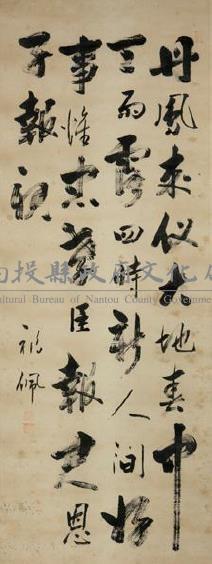 丹鳳來儀大地春中
天雨露四時新人間好
事惟忠孝臣報君恩
子報親
祖佩
南投縣政府文化局
Cultural Bureau of Nantou County Government